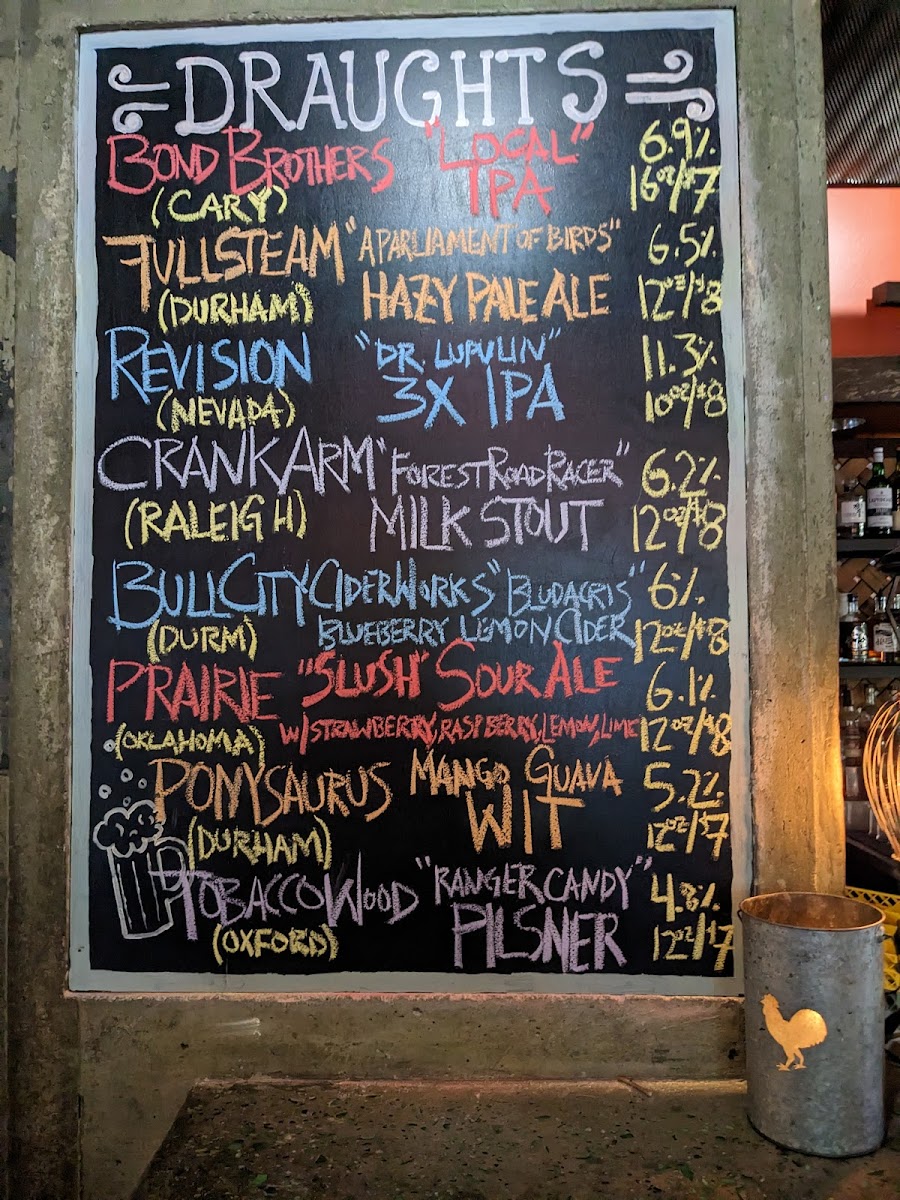 DRAUGHTS
BOND BROTHERS "LOCAL" 6.9%
(CARY) IPA 16oz/$7
FULLSTEAM "A PARLIAMENT OF BIRDS" 6.5%
(DURHAM) HAZY PALE ALE 12oz/$8
REVISION "DR. LUPULIN" 11.3%
(NEVADA) 3X IPA 10oz/$8
CRANK ARM "FOREST ROAD RACER" 6.2%
(RALEIGH) MILK STOUT 12oz/$8
BULL CITY CIDERWORKS "BLUDACRIS" 6%
(DURM) BLUEBERRY LEMON CIDER 12oz/$8
PRAIRIE "SLUSH" SOUR ALE 6.1%
(OKLAHOMA) W/STRAWBERRY, RASPBERRY, LEMON, LIME 12oz/$8
PONYSAURUS MANGO GUAVA 5.2%
(DURHAM) WIT 12oz/$7
TOBACCO WOOD "RANGER CANDY" 4.8%
(OXFORD) PILSNER 12oz/$7